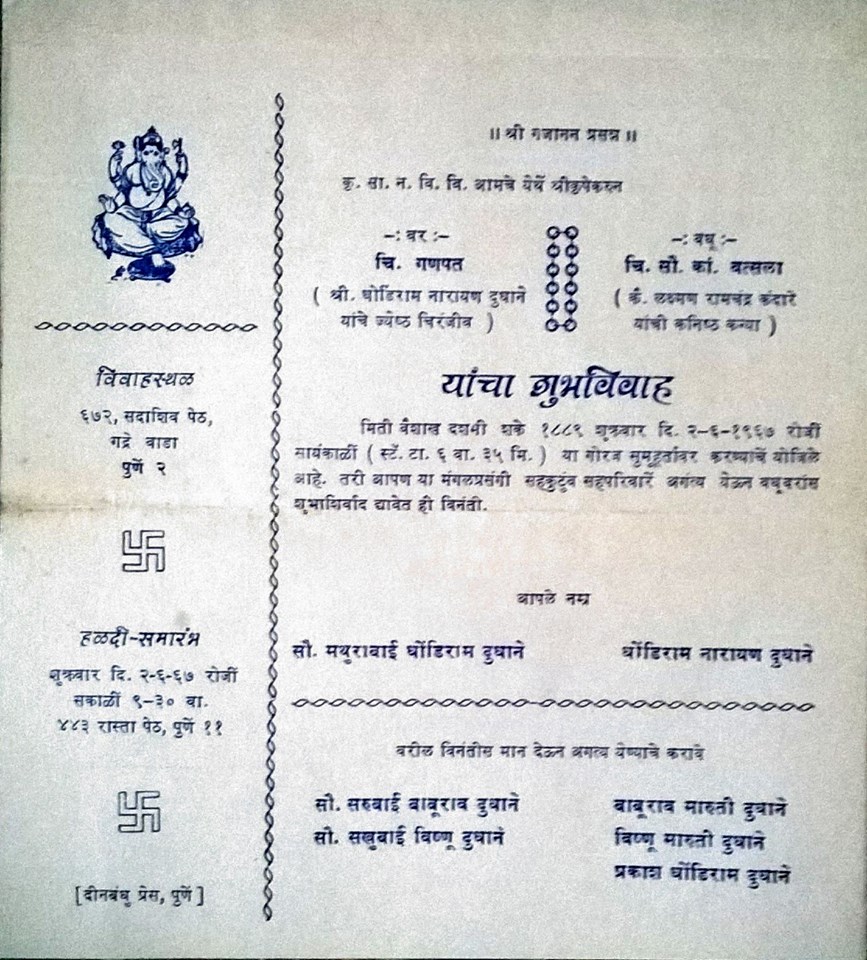 ॥ श्री गजानन प्रसन्न ॥
कृ. सा. न. वि. वि. आमचे येथें श्रीकृपेकरुन
-: वर :-
चि. गणपत
( श्री. धोंडिराम नारायण दुधाने
यांचे ज्येष्ठ चिरंजीव )
-: वधू :-
चि. सौ. कां. वत्सला
( कै. लक्ष्मण रामचंद्र कंदारे
यांची कनिष्ठ कन्या )
यांचा शुभविवाह
मिती वैशाख दशमी शके १८८९ शुक्रवार दि. २-६-१९६७ रोजीं
सायंकाळीं ( स्टँ. टा. ६ वा. ३५ मि. ) या गोरज सुमुहूर्तावर करण्याचें योजिले
आहे. तरी आपण या मंगलप्रसंगी सहकुटुंब सहपरिवारें अगत्य येऊन वधूवरांस
शुभाशिर्वाद द्यावेत ही विनंती.
आपले नम्र
सौ. मथुराबाई धोंडिराम दुधाने
धोंडिराम नारायण दुधाने
वरील विनंतीस मान देऊन अगत्य येण्याचे करावे
सौ. सरुबाई बाबूराव दुधाने
सौ. सखुबाई विष्णू दुधाने
बाबूराव मारुती दुधाने
विष्णू मारुती दुधाने
प्रकाश धोंडिराम दुधाने
विवाहस्थळ
६७२, सदाशिव पेठ,
गद्रे वाडा
पुणें २
हळदी-समारंभ
शुक्रवार दि. २-६-६७ रोजीं
सकाळीं ९-३० वा.
४४३ रास्ता पेठ, पुणें ११
[दीनबंधु प्रेस, पुणें]